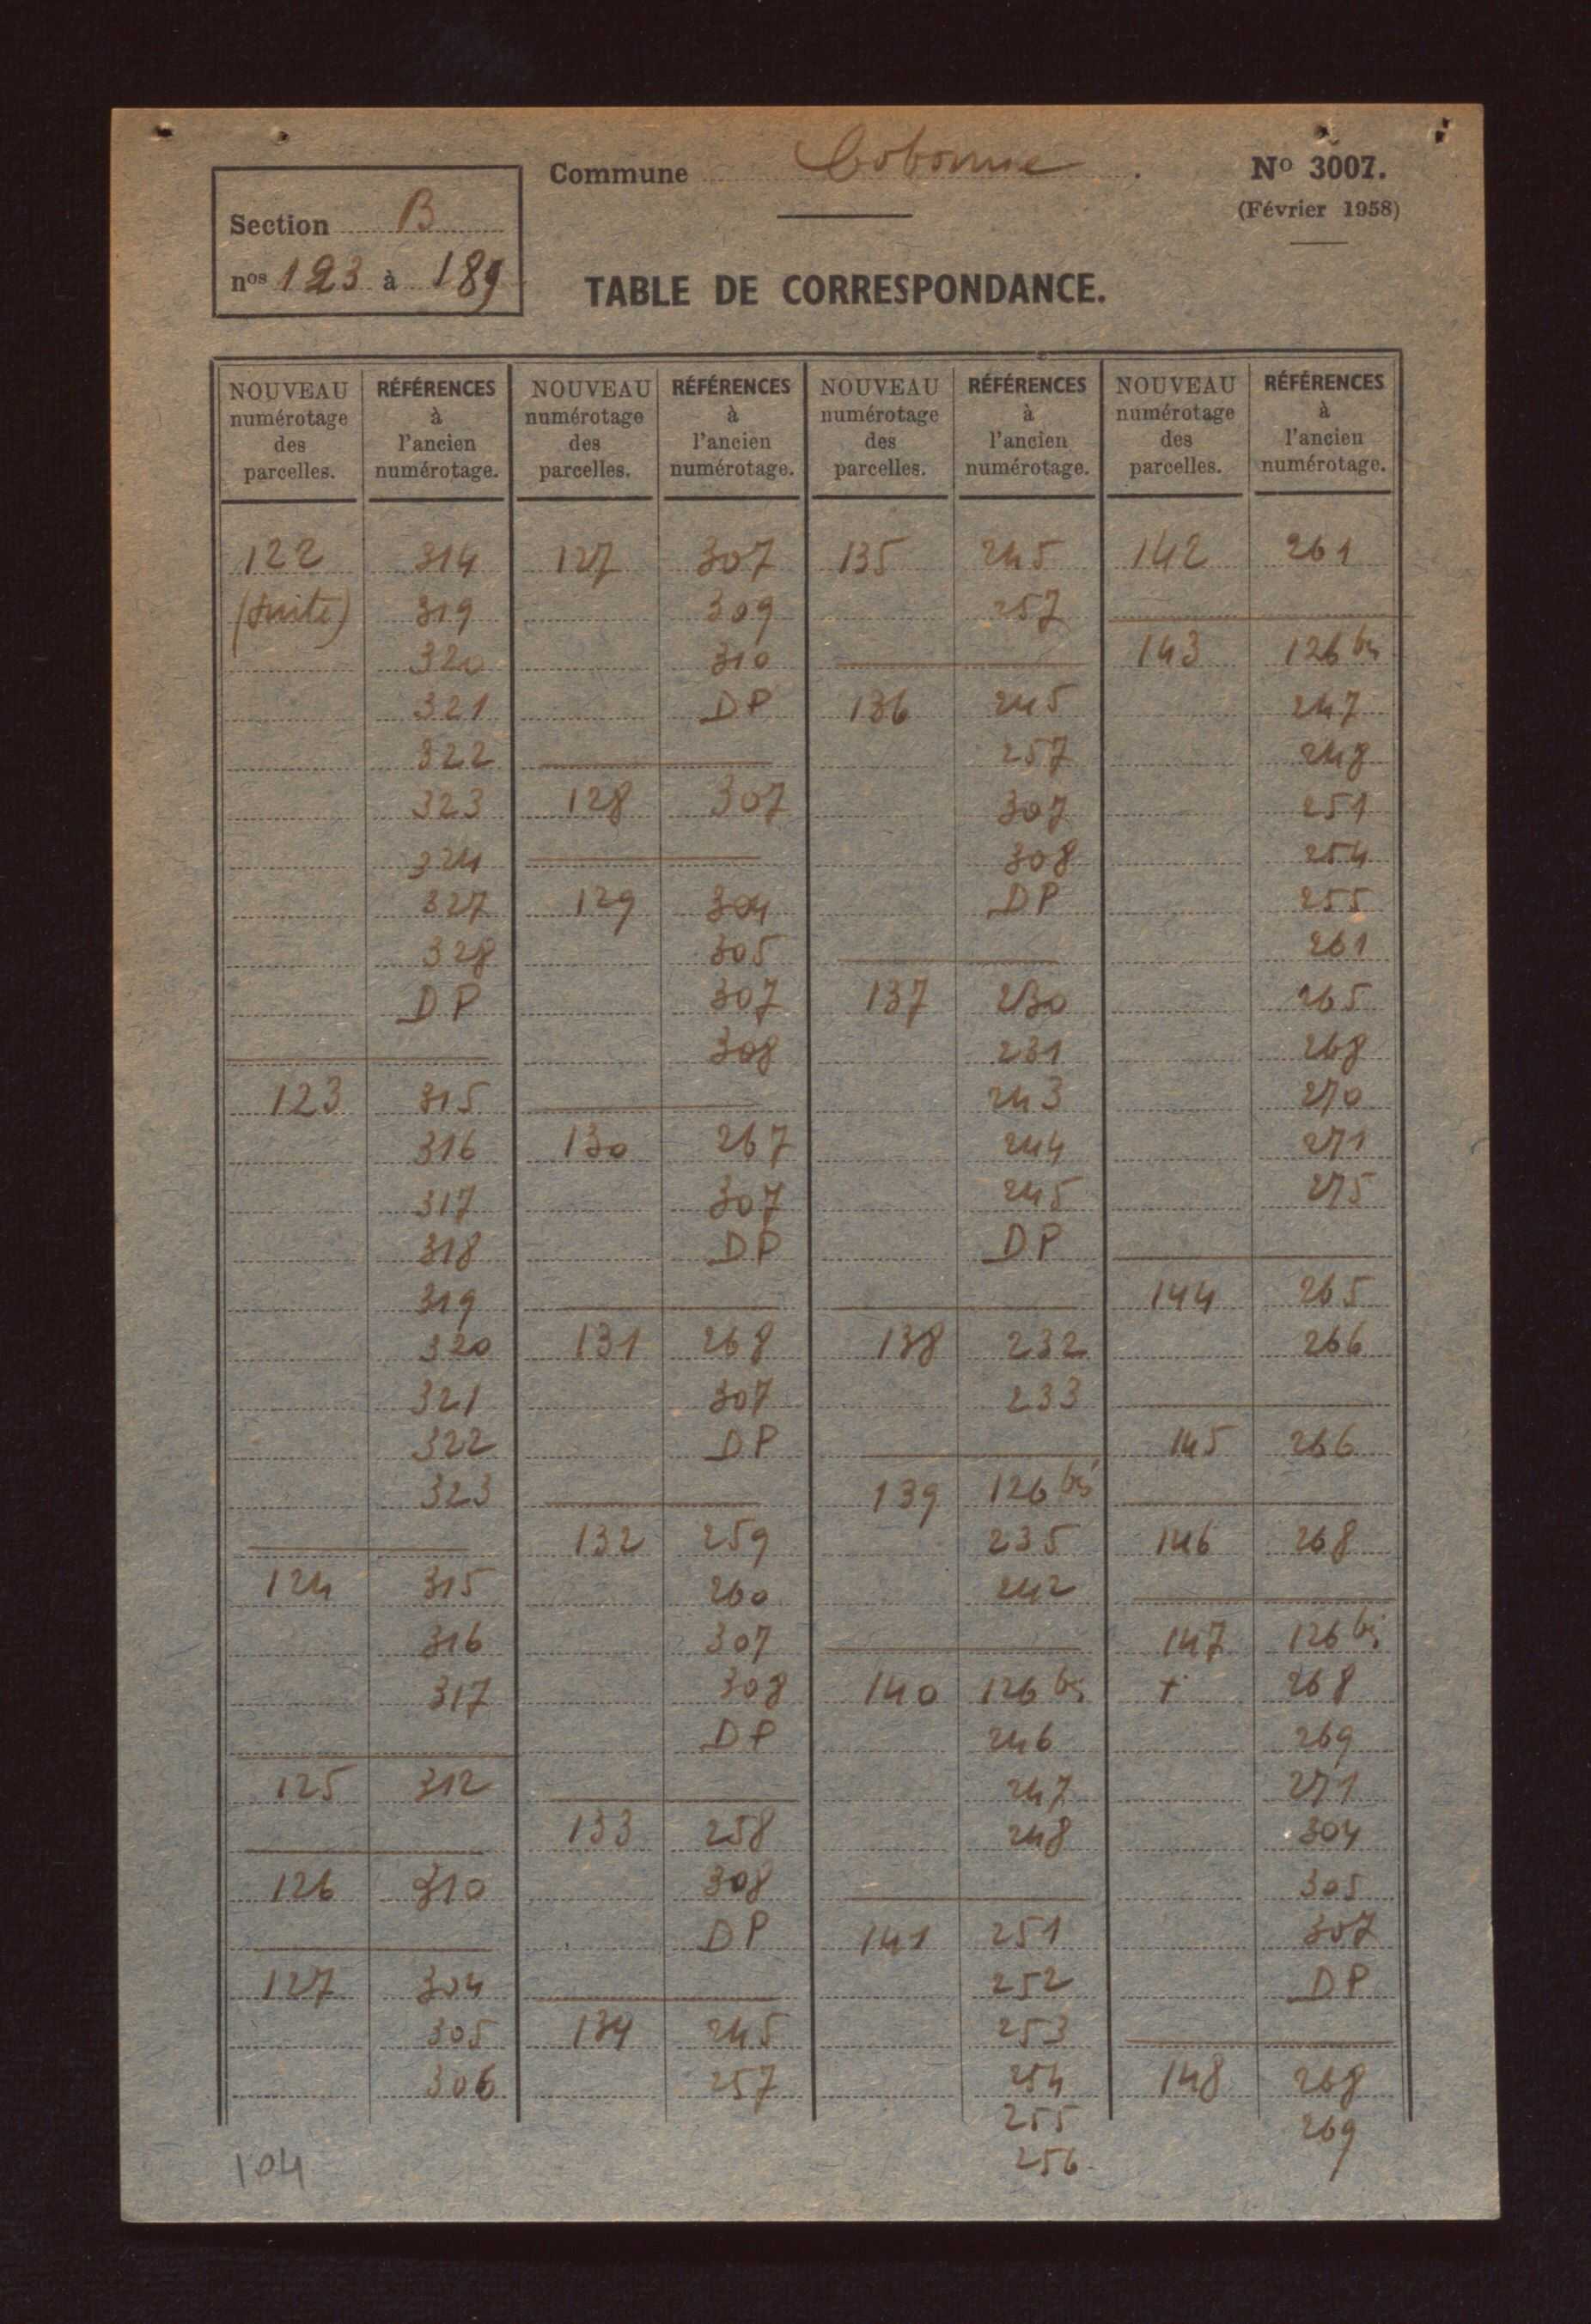 Commune Cobonne.
N° 3007.
(Février 1958)
Section B
nos 123 à 189
TABLE DE CORRESPONDANCE.
NOUVEAU numérotage des parcelles.
RÉFÉRENCES à l'ancien numérotage.
122 314
(suite) 319
320
321
322
323
324
327
328
DP
123 315
316
317
318
319
320
321
322
323
124 315
316
317
125 312
126 310
127 304
305
306
NOUVEAU numérotage des parcelles.
RÉFÉRENCES à l'ancien numérotage.
127 307
309
310
DP
128 307
129 304
305
307
308
130 267
307
DP
131 268
307
DP
132 259
260
307
308
DP
133 258
308
DP
134 245
257
NOUVEAU numérotage des parcelles.
RÉFÉRENCES à l'ancien numérotage.
135 245
257
136 245
257
307
308
DP
137 230
231
243
244
245
DP
138 232
233
139 126 bis
235
242
140 126 bis
246
247
248
141 251
252
253
254
255
256
NOUVEAU numérotage des parcelles.
RÉFÉRENCES à l'ancien numérotage.
142 261
143 126 bis
247
248
251
254
255
261
265
268
270
271
275
144 265
266
145 266
146 268
147 126 bis
+ 268
269
271
304
305
307
DP
148 268
269
104